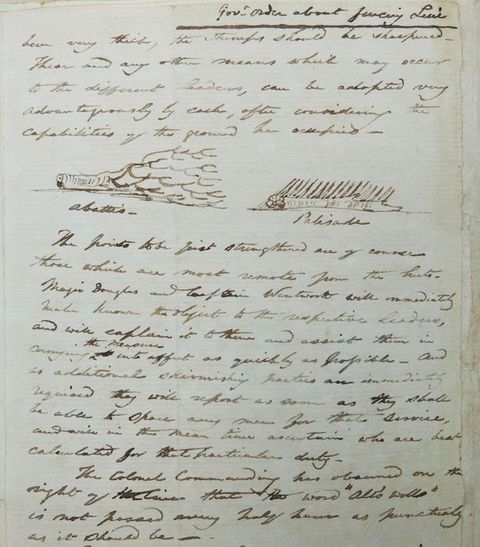 Govr Order about fencing Line
been very thick, the stumps should be sharpened—
These and any other means which may occur
to the different Leaders, can be adopted very
advantageously by each, after considering the
capabilities of the ground he occupies—
abattis—
Palisade
The points to be first strengthened are of course
those which are most remote from the huts—
Major Douglas and Captain Wentworth will immediately
make known the object to the respective Leaders,
and will explain it to them and assist them in
the measure
carrying into effect as quickly as possible— And
as additional skirmishing parties are immediately
required they will report as soon as they shall
be able to spare any men for that service,
and will in the mean time ascertain who are best
calculated for that particular duty—
The Colonel Commanding has observed on the
right of the that the word "All's well"
is not passed every half hour as punctually
as it should be—